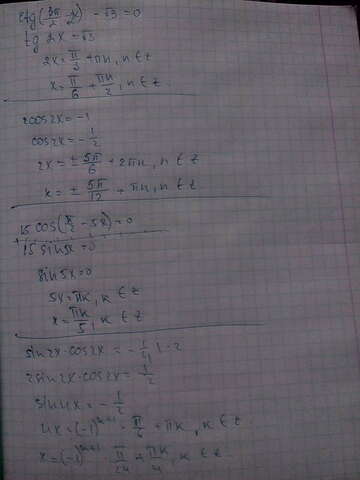 ctg(3π/2 - 2x) - √3 = 0
tg 2x = √3
2x = π/3 + πn, n ∈ z
x = π/6 + πn/2, n ∈ z
2cos2x = -1
cos2x = -1/2
2x = ± 5π/6 + 2πn, n ∈ z
x = ± 5π/12 + πn, n ∈ z
15 cos(π/2 - 5x) = 0
15 sin5x = 0
sin 5x = 0
5x = πk, k ∈ z
x = πk/5, k ∈ z
sin2x · cos2x = -1/4 | · 2
2sin2x · cos2x = -1/2
sin4x = -1/2
4x = (-1)^(k+1) · π/6 + πk, k ∈ z
x = (-1)^(k+1) · π/24 + πk/4, k ∈ z